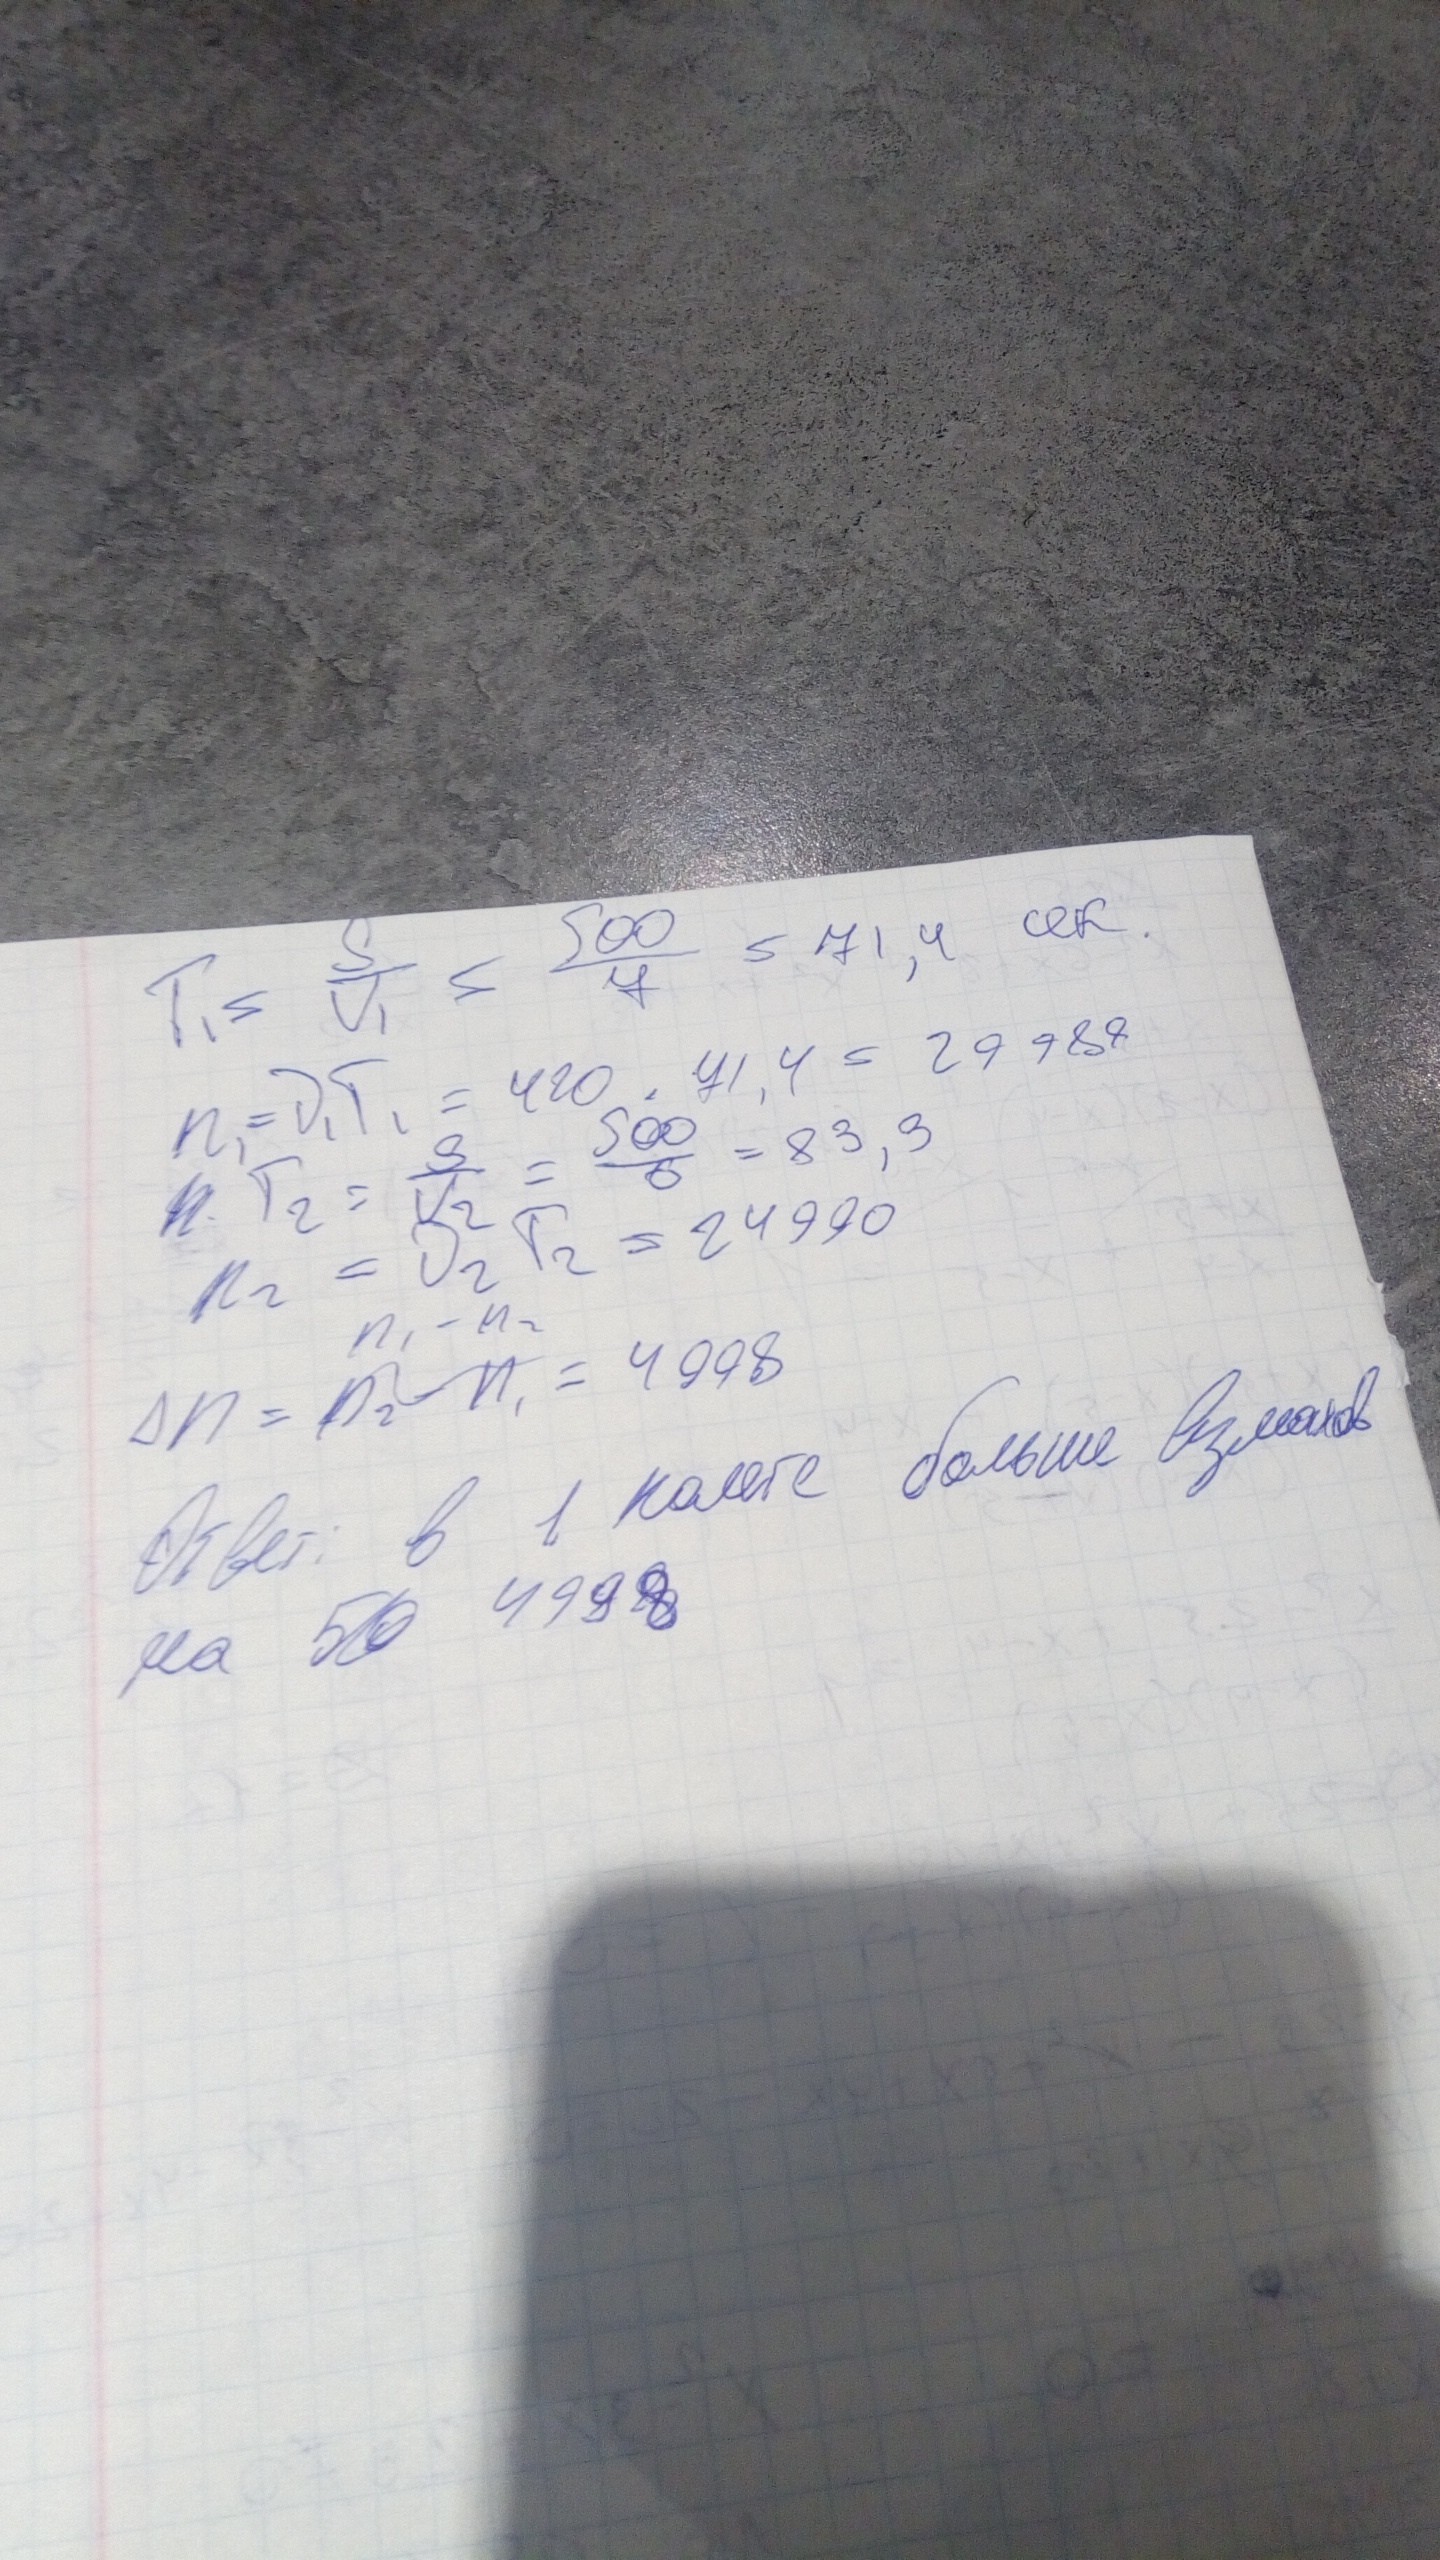 T₁ = S/V₁ = 500/7 = 71,4 сек.
n₁ = ν₁T₁ = 420 · 71,4 = 29988
T₂ = S/V₂ = 500/6 = 83,3
n₂ = ν₂T₂ = 24990
n₁ - n₂
Δn = n₂ - n₁ = 4998
Ответ: в 1 полёте больше взмахов
на 4998